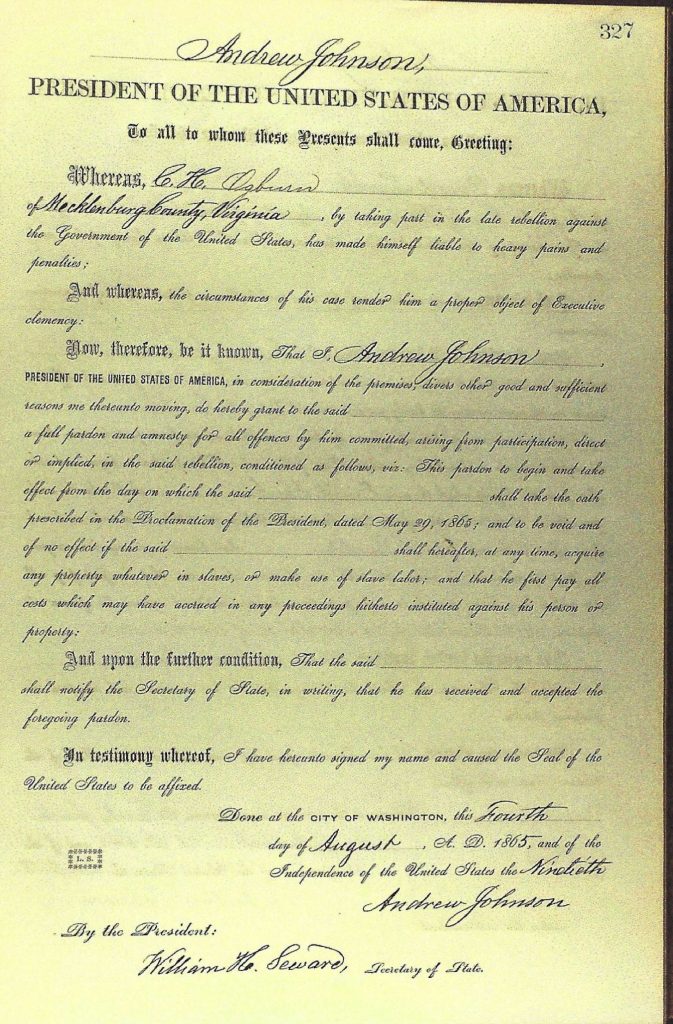 327
Andrew Johnson,
PRESIDENT OF THE UNITED STATES OF AMERICA,
To all to whom these Presents shall come, Greeting:
Whereas, C. H. Ogburn
of Mecklenburg County, Virginia, by taking part in the late rebellion against
the Government of the United States, has made himself liable to heavy pains and
penalties;
And whereas, the circumstances of his case render him a proper object of Executive
clemency:
Now, therefore, be it known, That I, Andrew Johnson,
PRESIDENT OF THE UNITED STATES OF AMERICA, in consideration of the premises, divers other good and sufficient
reasons me thereunto moving, do hereby grant to the said
a full pardon and amnesty for all offences by him committed, arising from participation, direct
or implied, in the said rebellion, conditioned as follows, viz: This pardon to begin and take
effect from the day on which the said shall take the oath
prescribed in the Proclamation of the President, dated May 29, 1865; and to be void and
of no effect if the said shall hereafter, at any time, acquire
any property whatever in slaves, or make use of slave labor; and that he first pay all
costs which may have accrued in any proceedings hitherto instituted against his person or
property:
And upon the further condition, That the said
shall notify the Secretary of State, in writing, that he has received and accepted the
foregoing pardon.
In testimony whereof, I have hereunto signed my name and caused the Seal of the
United States to be affixed.
Done at the CITY OF WASHINGTON, this Fourth
day of August, A. D. 1865, and of the
L. S.
Independence of the United States the Ninetieth
Andrew Johnson
By the President:
William H. Seward, Secretary of State.